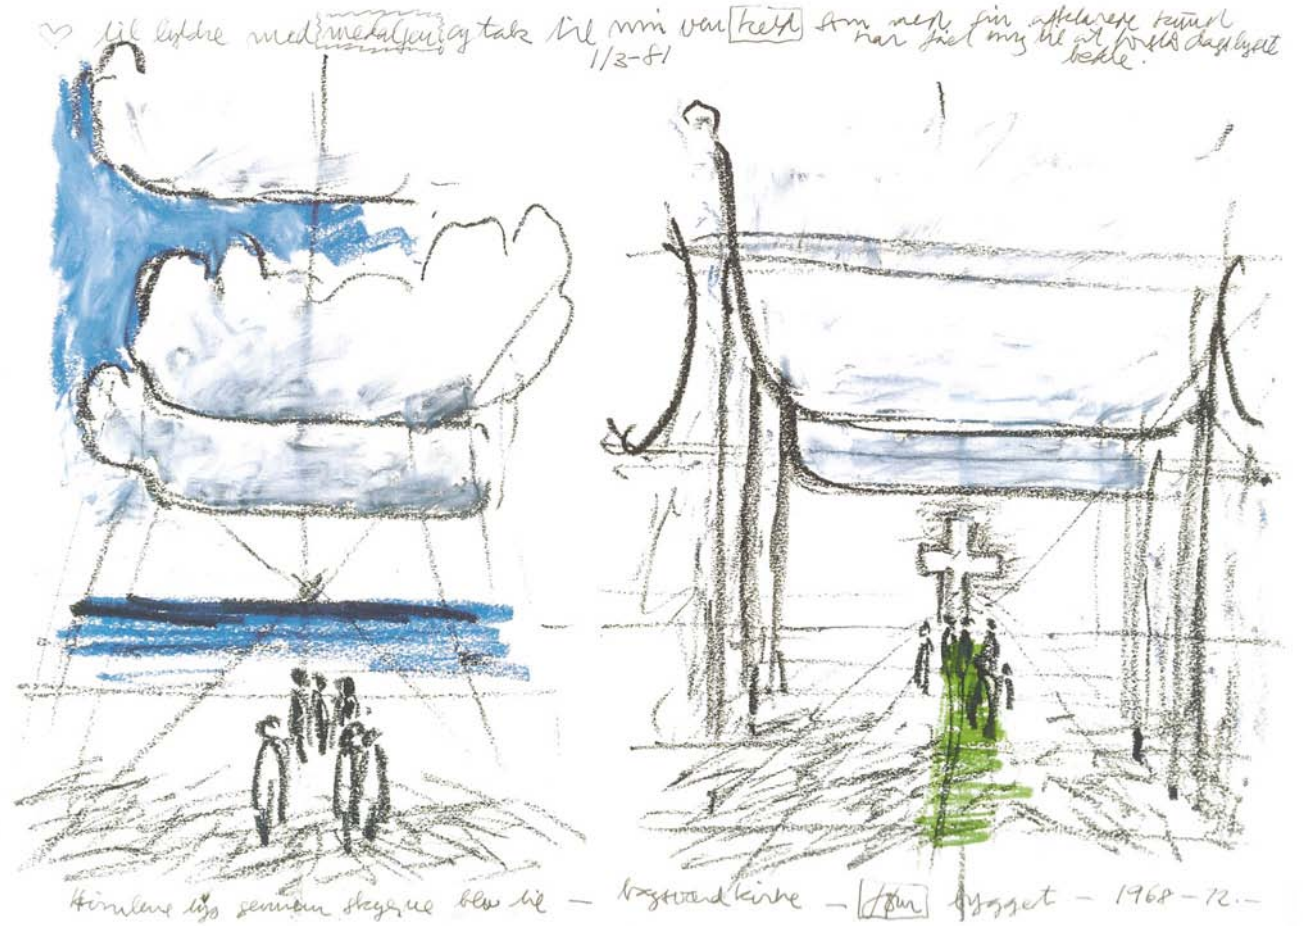 ♡ til lykke med medaljen og tak til min ven Keld som med sin afklarede kunst
har fået mig til at forstå dagslyset
1/3-81
Himlens lys gennem skyerne blev til – Bagsværd kirke – bygget – 1968-72.–